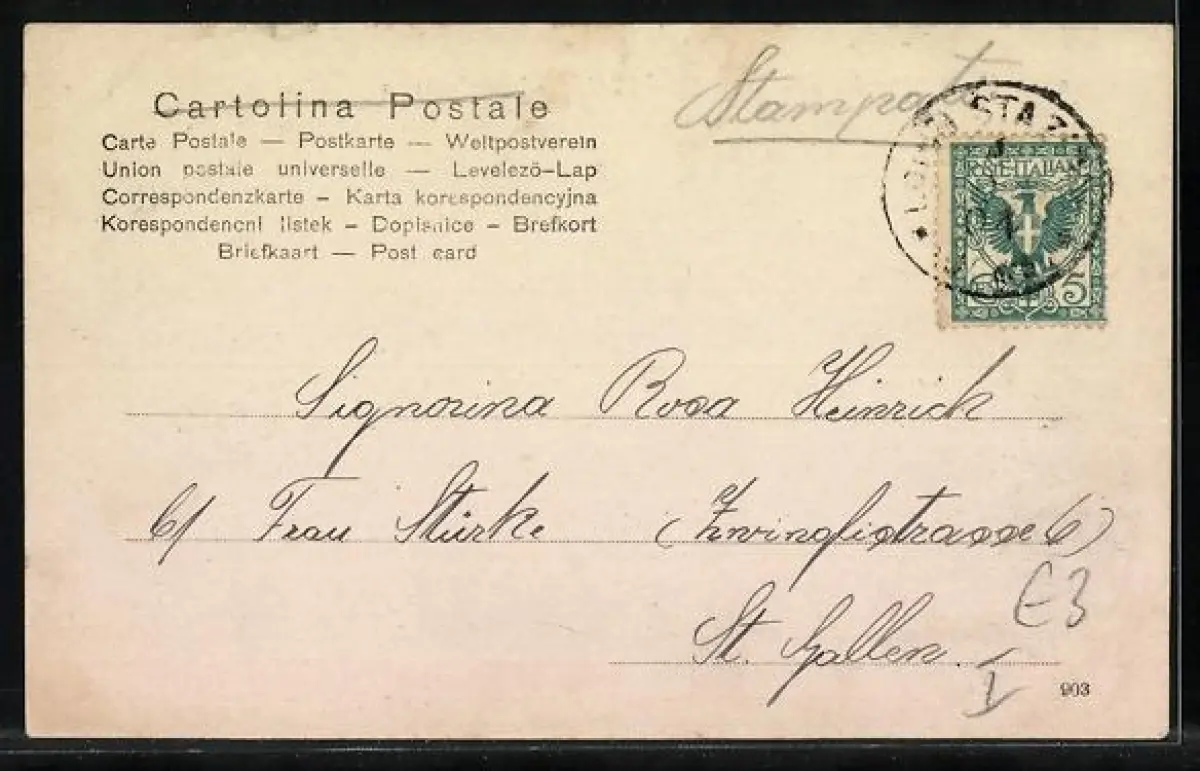 Cartolina Postale
Carte Postale — Postkarte — Weltpostverein
Union postale universelle — Levelező-Lap
Correspondenzkarte – Karta korespondencyjna
Korespondencni listek – Dopisnice – Brefkort
Briefkaart — Post card
Stampate
POSTE·ITALIANE
5
Signorina Rosa Heinrich
b/ Frau Stürke (Zwinglistrasse 6)
St. Gallen.
E3
I
903